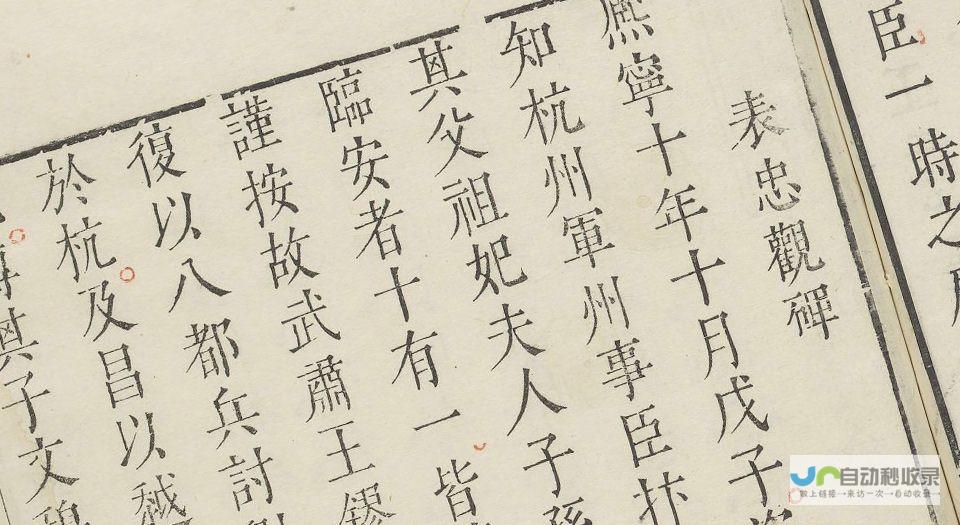 臣一時之
表忠觀碑
熙寧十年十月戊子
知杭州軍州事臣抃
其父祖妃夫人子孫
臨安者十有一皆
謹按故武肅王鏐
復以八都兵討
於杭及昌以越
其子文穆
自动秒收录
做上链接→来访一次→自动收录